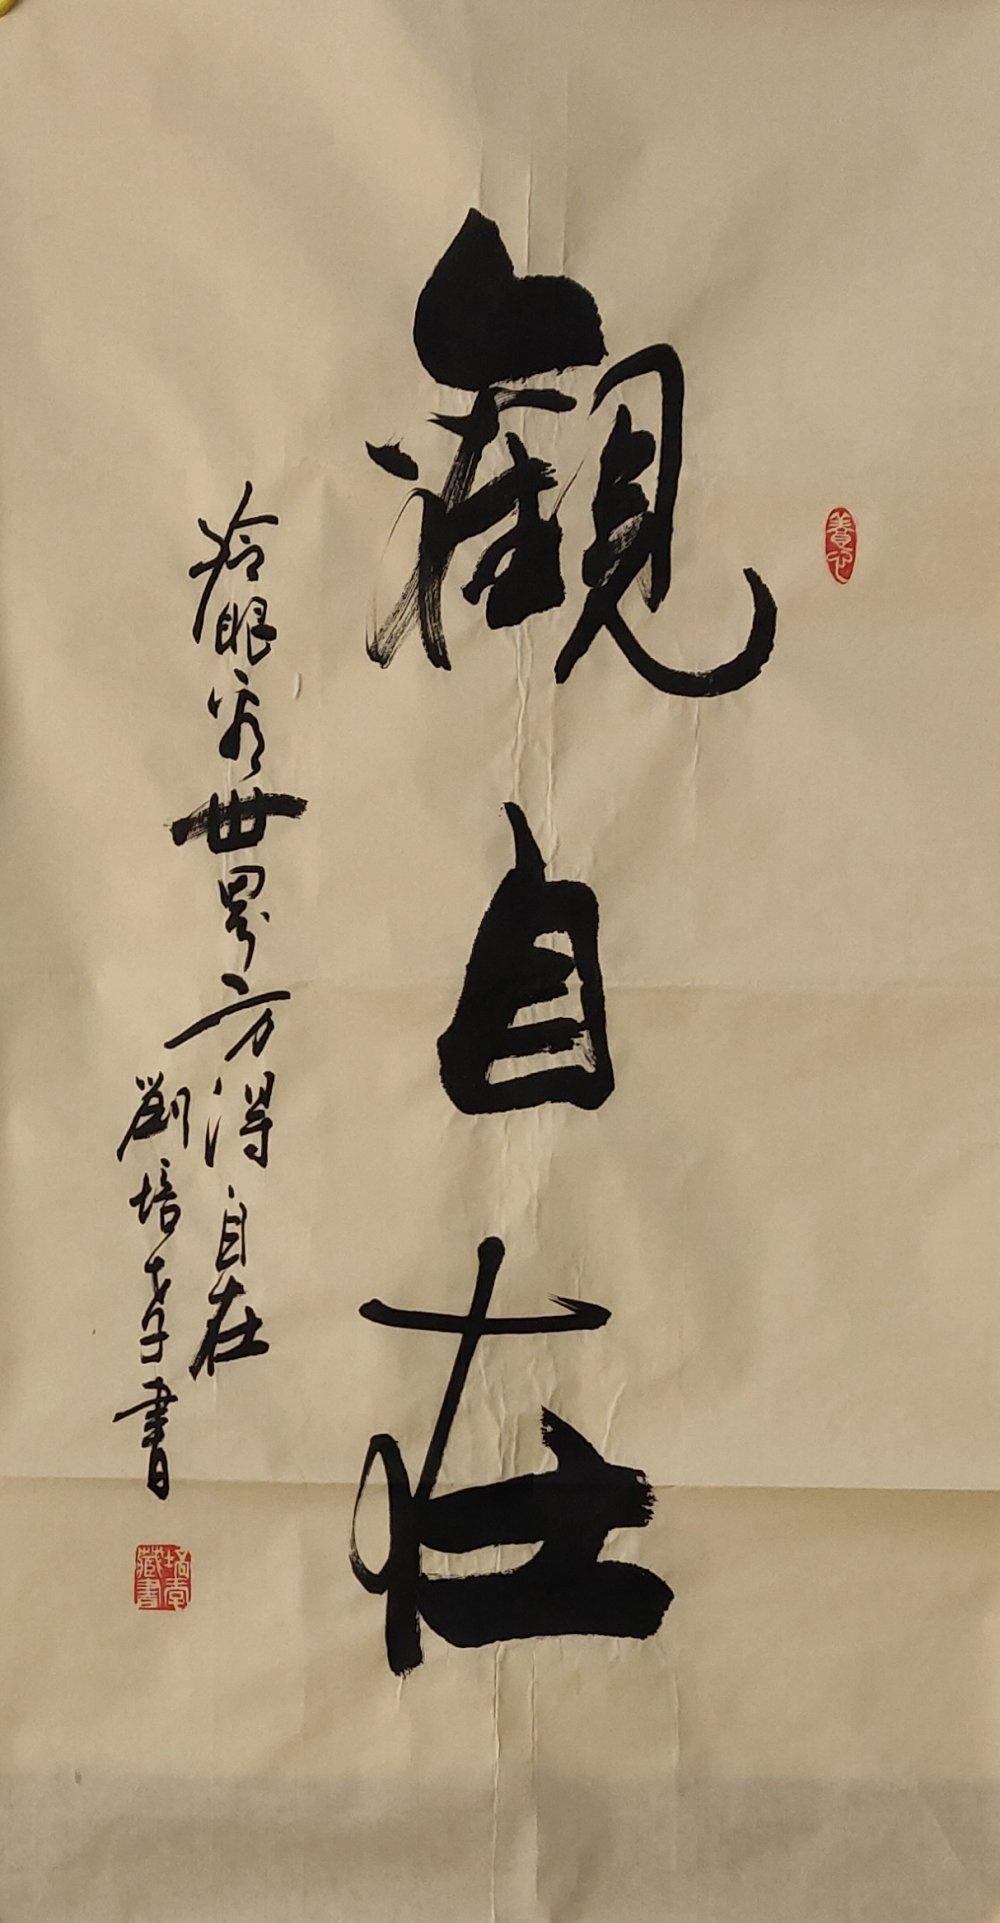 觀自在
養心
冷眼看世界方得自在
劉培孝書
培孝藏書